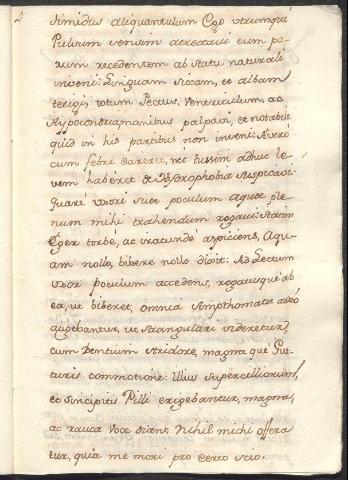 timidus aliquantulum Ego utrumque
Pulsum sensim attrectavi eum pa-
rum recedentem ab statu naturali
inveni: Linguam siccam, et albam
terigi, totum Pectus, Ventriculum, ac
Hypocondria manibus palpavi, et notabile
quid in his partibus non inveni: At vero
cum febre careret, nec tussim adhuc le-
vem haberet de Hydrophobia suspicavi:
quare uxori suæ poculum aquæ ple-
num mihi trahendum rogavi: statim
Eger torbè, ac iracunde aspiciens, Aqu-
am nollo, bibere nollo dixit: Ad Lectum
uxor poculum accedens, rogatusque ab
ea, ut biberet, omnia simpthomata adeo
augebantur, ut strangulari videretur,
cum Dentium stridore, magna que Gut-
turis commotione: illius supercilliorum,
et sincipitis Pilli erigebantur, magna,
ac rauca voce dicens, Nihil michi offera-
tur, quia me mori pro certo scio.